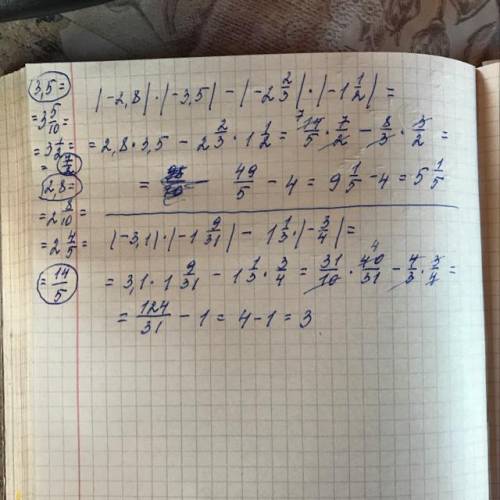 3,5 =
= 3 5/10 =
= 3 1/2 =
= 7/2
2,8 =
= 2 8/10 =
= 2 4/5 =
= 14/5
|-2,8| · |-3,5| - |-2 2/3| · |-1 1/2| =
= 2,8 · 3,5 - 2 2/3 · 1 1/2 = 14/5 · 7/2 - 8/3 · 3/2 =
= 49/5 - 4 = 9 1/5 - 4 = 5 1/5
|-3,1| · |-1 9/31| - 1 1/3 · |-3/4| =
= 3,1 · 1 9/31 - 1 1/3 · 3/4 = 31/10 · 40/31 - 4/3 · 3/4 =
= 124/31 - 1 = 4 - 1 = 3